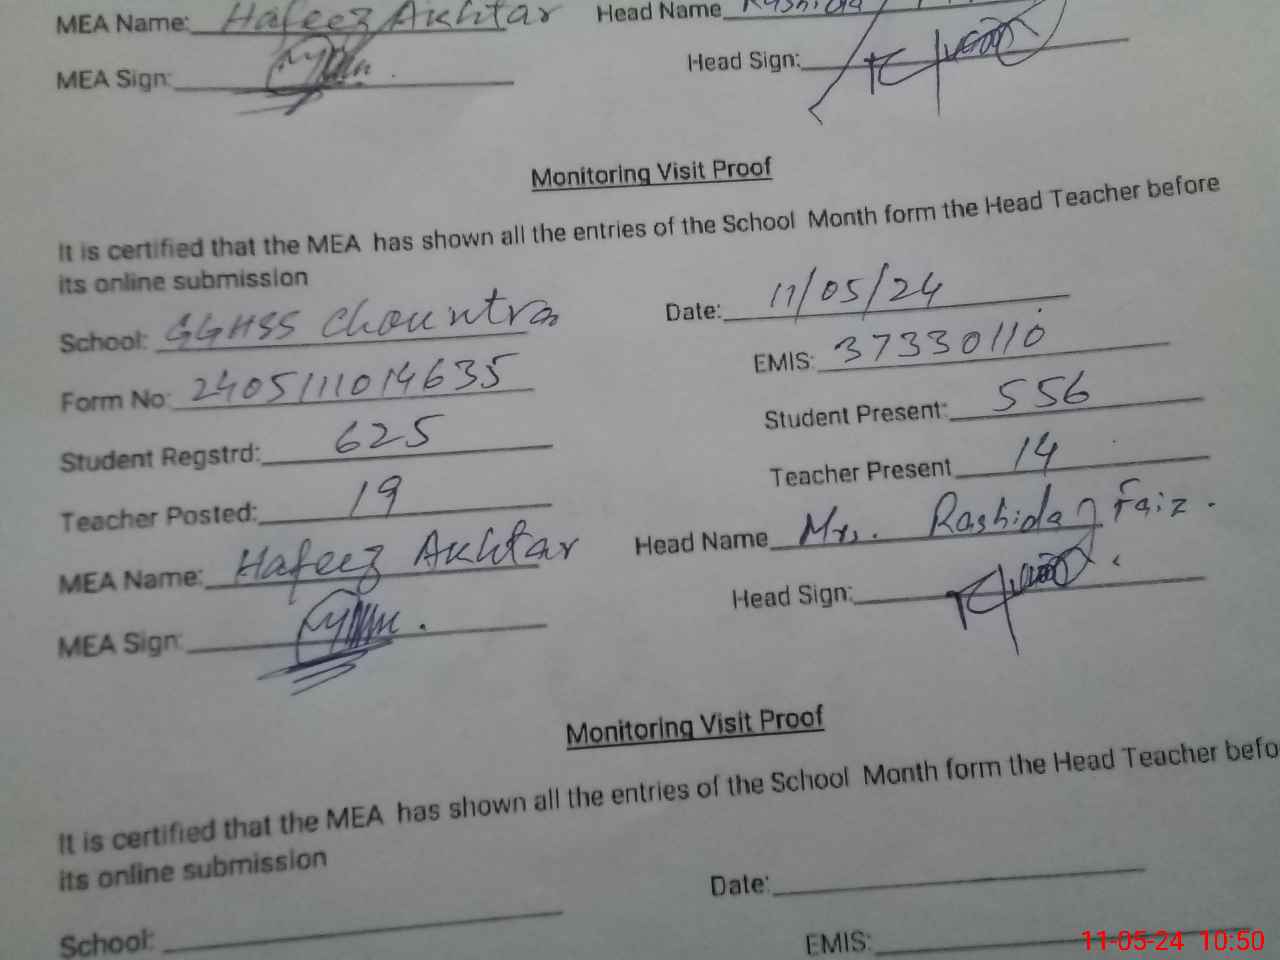 MEA Name: Hafeez Akhtar Head Name Rashida
MEA Sign: Head Sign:
Monitoring Visit Proof
It is certified that the MEA has shown all the entries of the School Month form the Head Teacher before
its online submission
School: GGHSS Chountra Date: 11/05/24
Form No: 2405111014635 EMIS: 37330110
Student Regstrd: 625 Student Present: 556
Teacher Posted: 19 Teacher Present 14
MEA Name: Hafeez Akhtar Head Name Mrs. Rashida Faiz.
MEA Sign: Head Sign:
Monitoring Visit Proof
It is certified that the MEA has shown all the entries of the School Month form the Head Teacher befo
its online submission
Date:
School: EMIS:
11-05-24 10:50